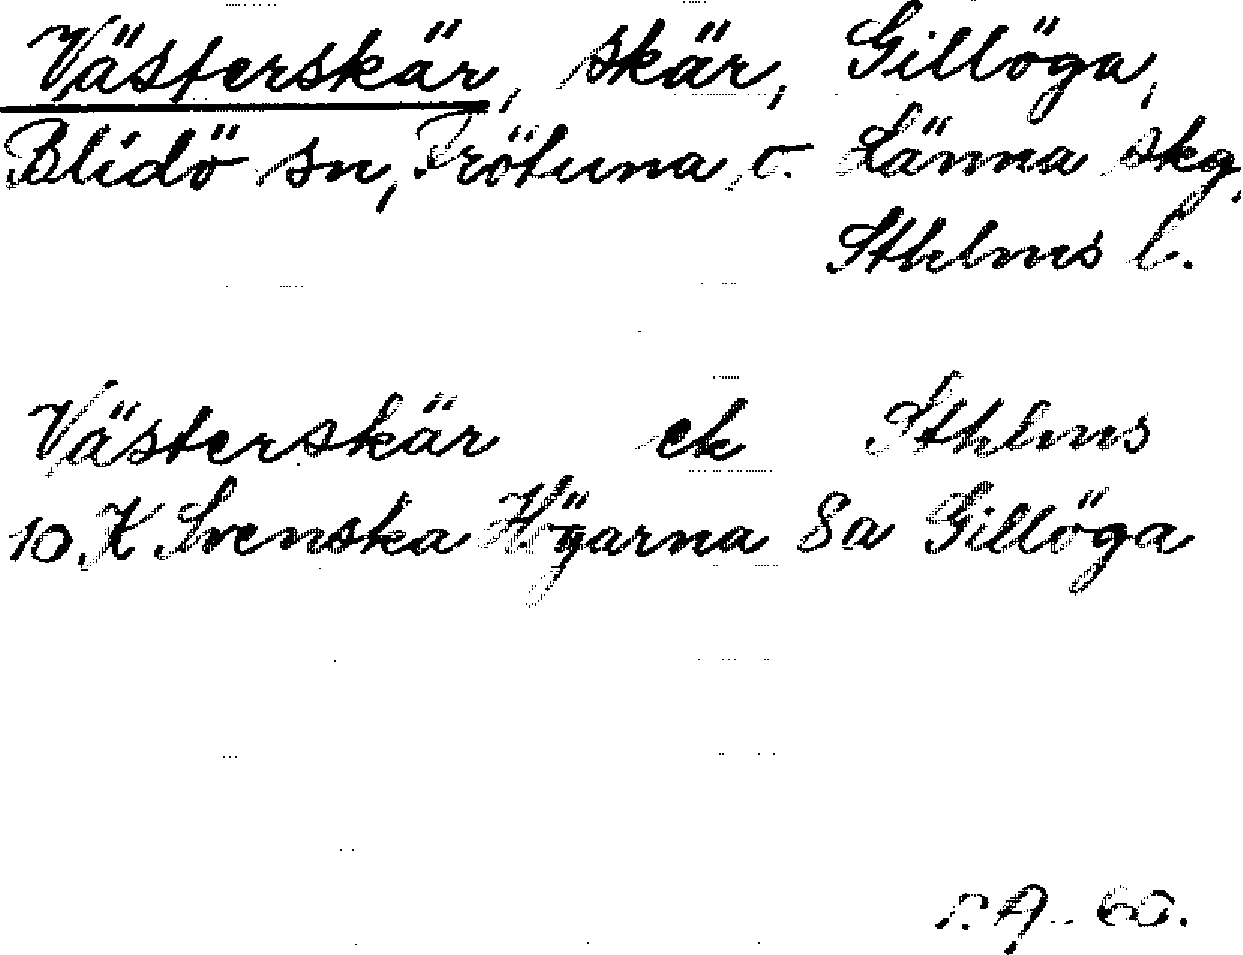 Västerskär, skär, Gillöga,
Blidö sn, Frötuna o. Länna skg,
Sthlms l.
Västerskär ek Sthlms
10. K Svenska Högarna 8a Gillöga